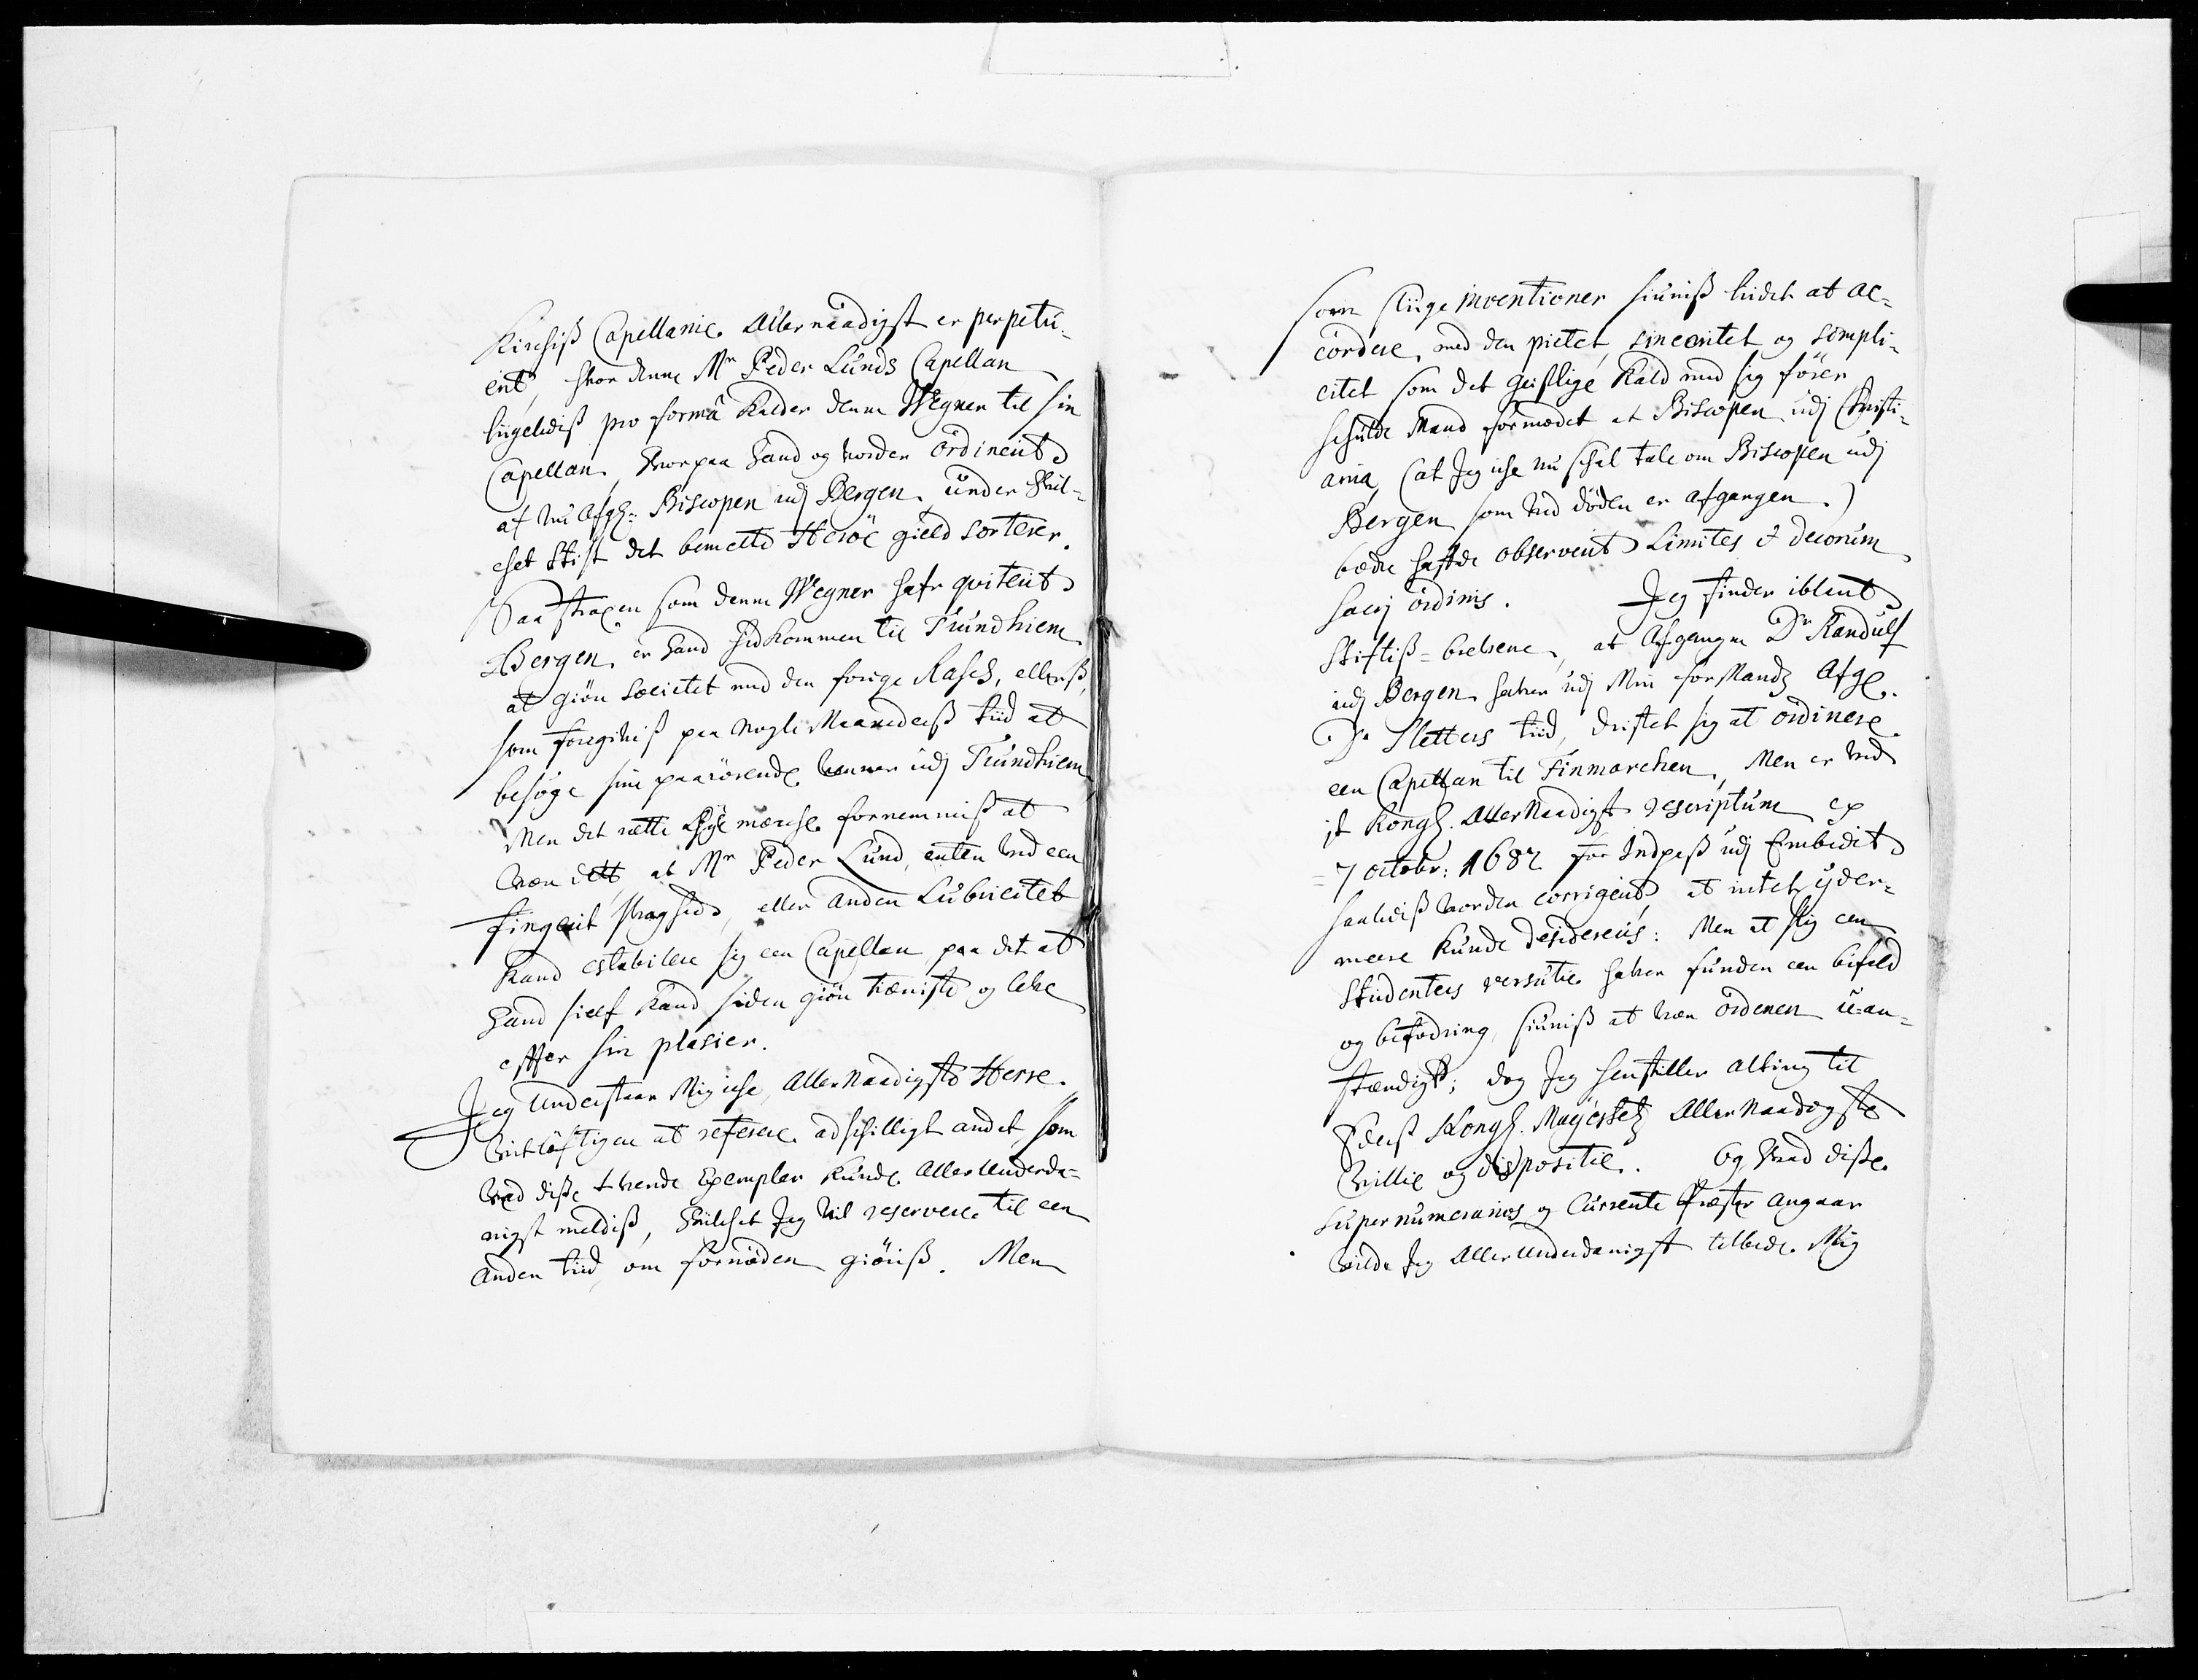 Kirchiß Capellanie. Allernaadigst er perpetu-
ert, hvor denne Mr Peder Lunds Capellan
liigeledis pro formâ kalder denne Wegner til sin
Capellan, hvorpaa hand og vorden ordinerit
af nu Afg: Biscopen udj Bergen, under hvil-
chet Stift det bemelte Herøe gield sorterer.
Saa strax som denne Wegner hafr qvitterit
Bergen, er hand hidkommen til Trundhiem
at giøre Societet med den forige Rasch, ellerß,
som foregifviß paa nogle Maanederß tiid at
besøge sine paarørende venner udj Trundhiem
Men det rette øye mærche fornemmiß at
være dett, at Mr Peder Lund, enten ved een
fingerit svaghed, eller anden Lubricitet
kand establere sig een Capellan, paa det at
hand sielf kand siden giøre tieniste og leve
efter sin plasier.
Jeg understaar Mig iche, Allernaadigste Herre.
vitløftigere at referere adschilligt andet, som
ved diße tvende Exempler kunde Allerunderda-
nigst meldiß, hvilchet Jeg vil reservere til een
anden tiid, om fornøden giøriß. Men
som sliige inventioner siuniß lidet at ac-
cordere, med den pietet, sinceritet og simpli-
citet som det geistlige kald med sig fører
schulde Mand formodet at Biscopen udj Christi-
ania, (at Jeg iche nu schal tale om Biscopen udj
Bergen som ved døden er afgangen.)
bedre hafde observerit Limites et decorum
sacrj ordinis. Jeg finder iblant
Stiftiß-brefvene, at Afgangne Dr Randulf
udj Bergen hafver udj Min forMandz Afg.
Dr Sletters tiid, dristet sig at ordinere
een Capellan til Finmarchen, Men er ved
it Kongl. AllerNaadigst rescriptum ex
7 octobr: 1682 for Indpaß udj Embedit
saaledis vorden corrigerit at intet yder-
meere kunde desidereris: Men at slig een
Studenters versutie hafver funden een bifald
og befodring, siuniß at være ordenen u-an-
stændigt; dog Jeg henstiller alting til
Ederß Kongl. Mayestetz AllerNaadigste
villie og dispositie. Og hvad diße
supernumerarios og Currente Præster angaar
vilde Jeg Allerunderdanigst tilbede Mig